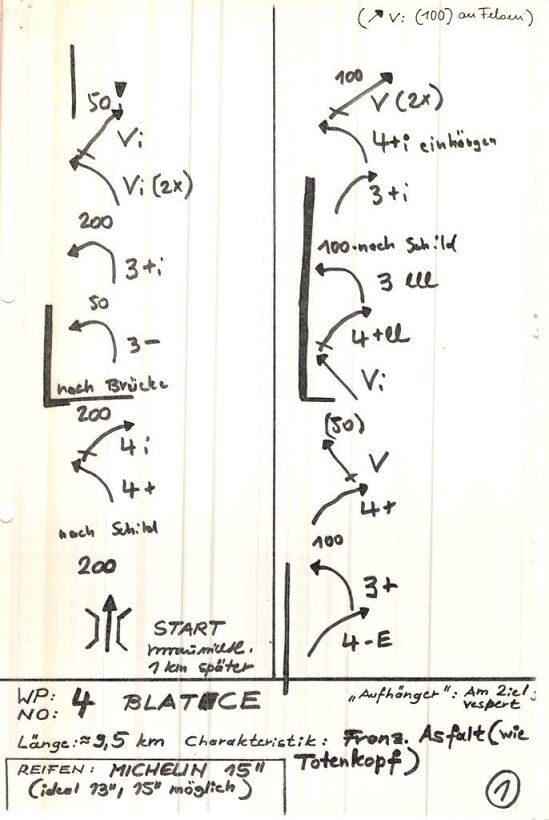 (↗ V: (100) an Felsen)
50
Vi
Vi (2x)
200
3+i
50
3-
nach Brücke
200
4i
4+
nach Schild
200
START
1 km später
100
V (2x)
4+i einhängen
3+i
100 nach Schild
3 lll
4+ll
Vi
(50)
V
4+
100
3+
4-E
WP: 4 BLATCE
NO:
"Aufhänger": Am Ziel:
vespert
Länge: ≈9,5 km Charakteristik: Franz. Asfalt (wie
Totenkopf)
REIFEN: MICHELIN 15"
(ideal 13", 15" möglich)
1